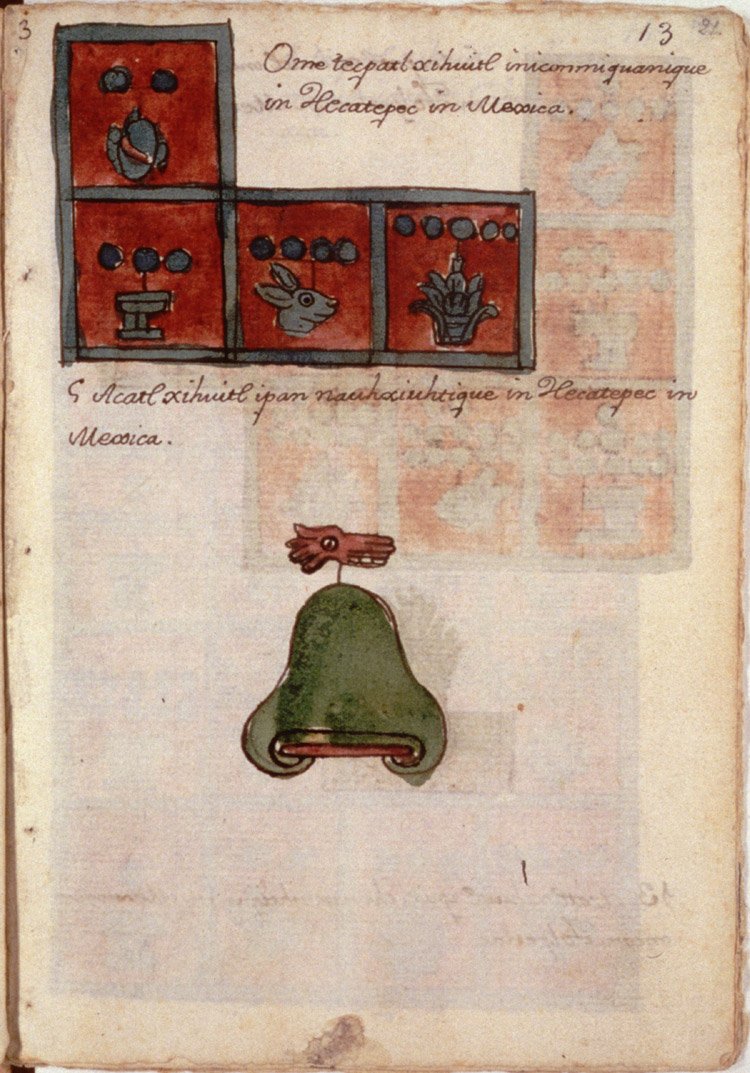 3
13 21
Ome tecpatl xihuitl inicommiquanique
in Hecatepec in Mexica.
5 Acatl xihuitl ipan nauhxiuhtique in Hecatepec in
Mexica.